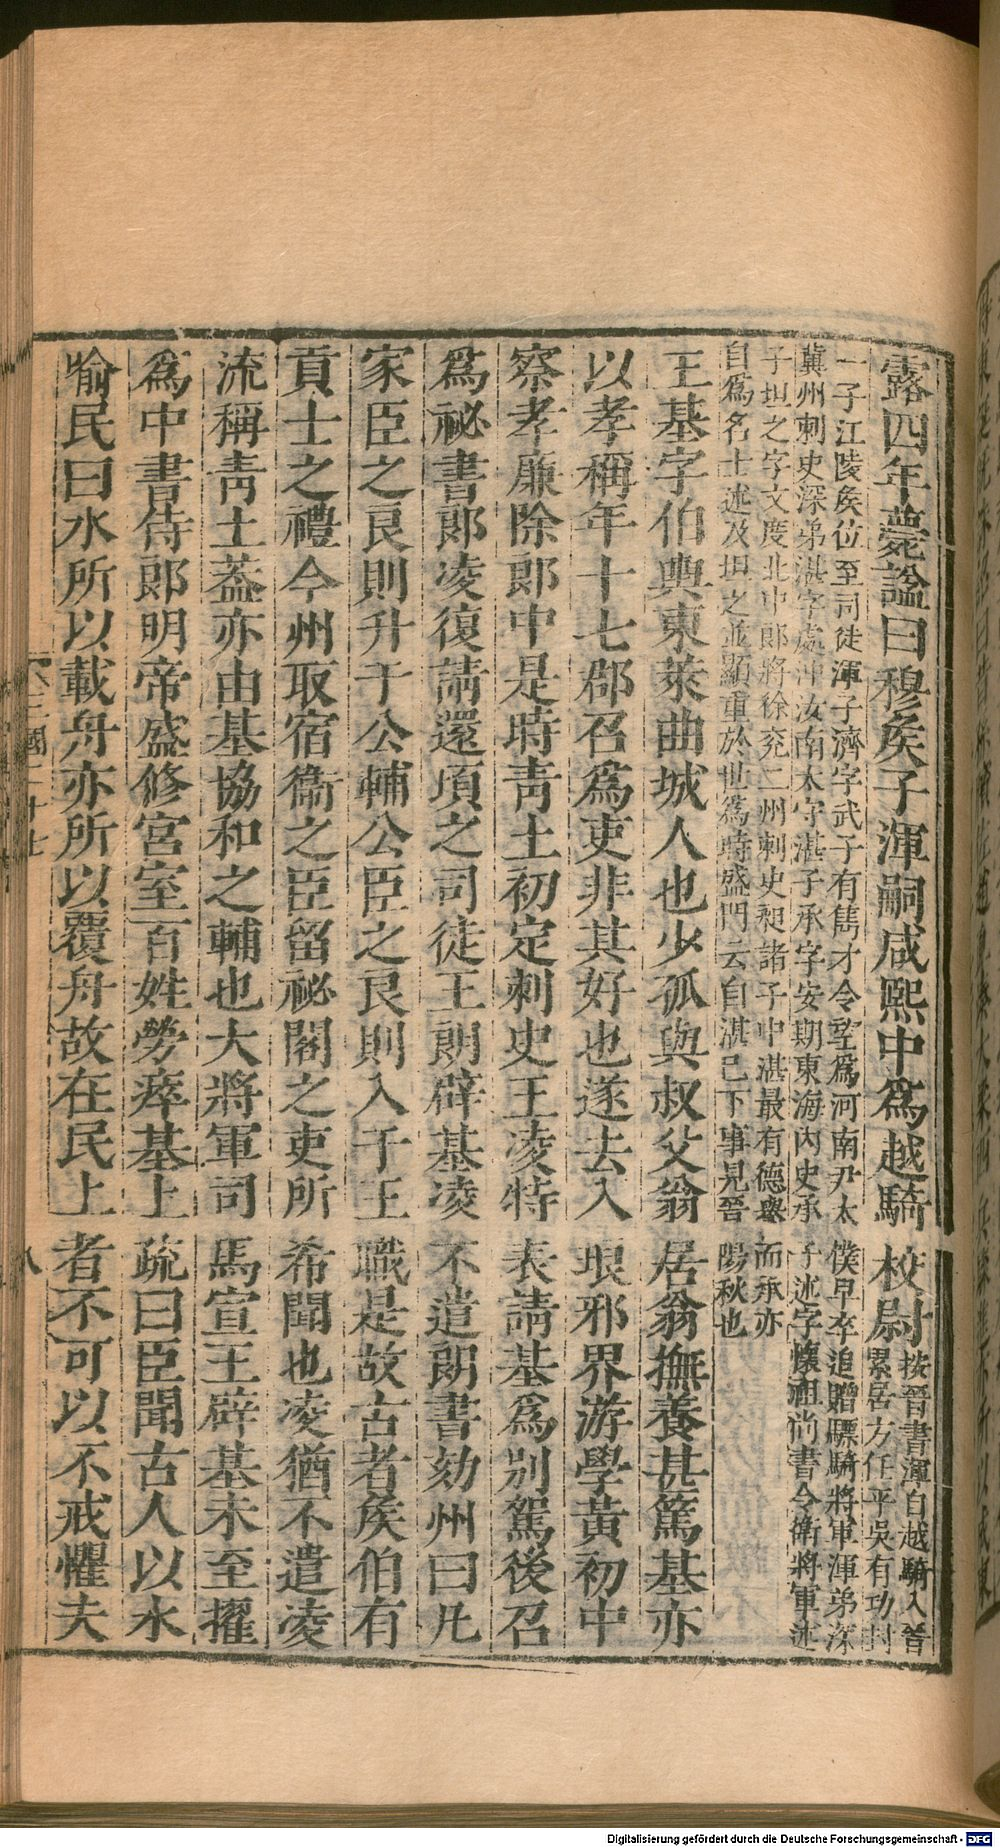 露四年薨諡曰穆矦子渾嗣咸熙中爲越騎校尉按晉書渾自越騎入晉
累居方任平吳有功封
一子江陵矦位至司徒渾子濟字武子有雋才令望爲河南尹太僕早卒追贈驃騎將軍渾弟深
冀州刺史深弟湛字處沖汝南太守湛子承字安期東海內史承子述字懷祖尚書令衛將軍述
子坦之字文度北中郎將徐兗二州刺史昶諸子中湛最有德譽而承亦
自爲名士述及坦之並顯重於世爲時盛門云自湛已下事見晉陽秋也
王基字伯輿東萊曲城人也少孤與叔父翁居翁撫養甚篤基亦
以孝稱年十七郡召爲吏非其好也遂去入琅邪界游學黃初中
察孝廉除郎中是時靑土初定刺史王凌特表請基爲別駕後召
爲祕書郞凌復請還頃之司徒王朗辟基凌不遣朗書劾州曰凡
家臣之良則升于公輔公臣之良則入于王職是故古者矦伯有
貢士之禮今州取宿衞之臣留祕閣之吏所希聞也凌猶不遣凌
流稱靑土葢亦由基協和之輔也大將軍司馬宣王辟基未至擢
爲中書侍郞明帝盛修宮室百姓勞瘁基上疏曰臣聞古人以水
喻民曰水所以載舟亦所以覆舟故在民上者不可以不戒懼夫
三國二十七
八
Digitalisierung gefördert durch die Deutsche Forschungsgemeinschaft - DFG